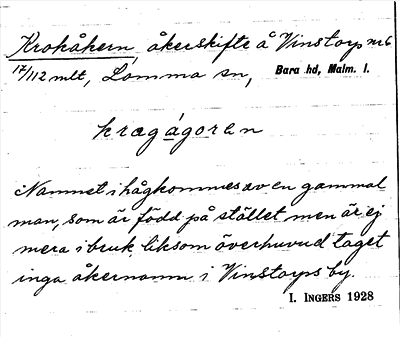 Krokåkern, åkerskifte å Vinstorp nr 6
17/112 mlt, Lomma sn, Bara hd, Malm. l.
krægågoren
Namnet ihågkommes av en gammal
man, som är född på stället men är ej
mera i bruk, liksom överhuvud taget
inga åkernamn i Vinstorps by.
I. INGERS 1928